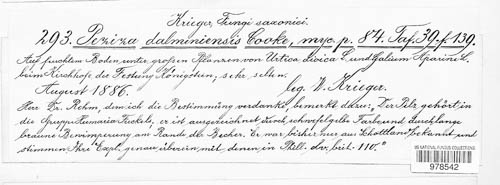 Krieger, Fungi saxonici.
293. Peziza dalmeniensis Cooke, myc. p. 84. Taf. 39. f. 139.
Auf feuchtem Boden, unter großen Pflanzen von Urtica dioica L. und Galium Aparine L.
beim Kirchhofe der Festung Königstein, sehr selten.
August 1886. leg. W. Krieger.
Herr Dr. Rehm, dem ich die Bestimmung verdanke, bemerkt dazu: „Der Pilz gehört in
die Gruppe Humaria Fuckel's, er ist ausgezeichnet durch schwefelgelbe Farbe und durch lange
braune Bewimperung am Rande der Becher. Er war bisher nur aus Schottland bekannt und
stimmen Ihre Expl. genau überein mit denen in Phill. elv. brit. 110."
US NATIONAL FUNGUS COLLECTIONS
978542